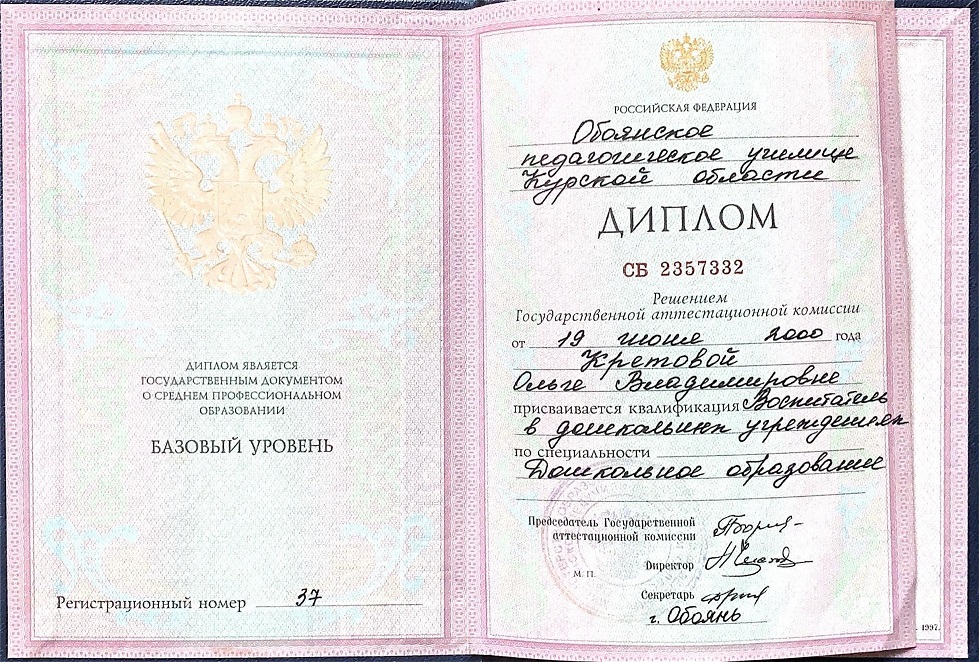 ДИПЛОМ ЯВЛЯЕТСЯ
ГОСУДАРСТВЕННЫМ ДОКУМЕНТОМ
О СРЕДНЕМ ПРОФЕССИОНАЛЬНОМ
ОБРАЗОВАНИИ
БАЗОВЫЙ УРОВЕНЬ
Регистрационный номер 37
РОССИЙСКАЯ ФЕДЕРАЦИЯ
Обоянское
педагогическое училище
Курской области
ДИПЛОМ
СБ 2357332
Решением
Государственной аттестационной комиссии
от 19 июня 2000 года
Кретовой
Ольге Владимировне
присваивается квалификация Воспитатель
в дошкольных учреждениях
по специальности
Дошкольное образование
Председатель Государственной
аттестационной комиссии
Директор
М. П.
Секретарь
г. Обоянь
1997.